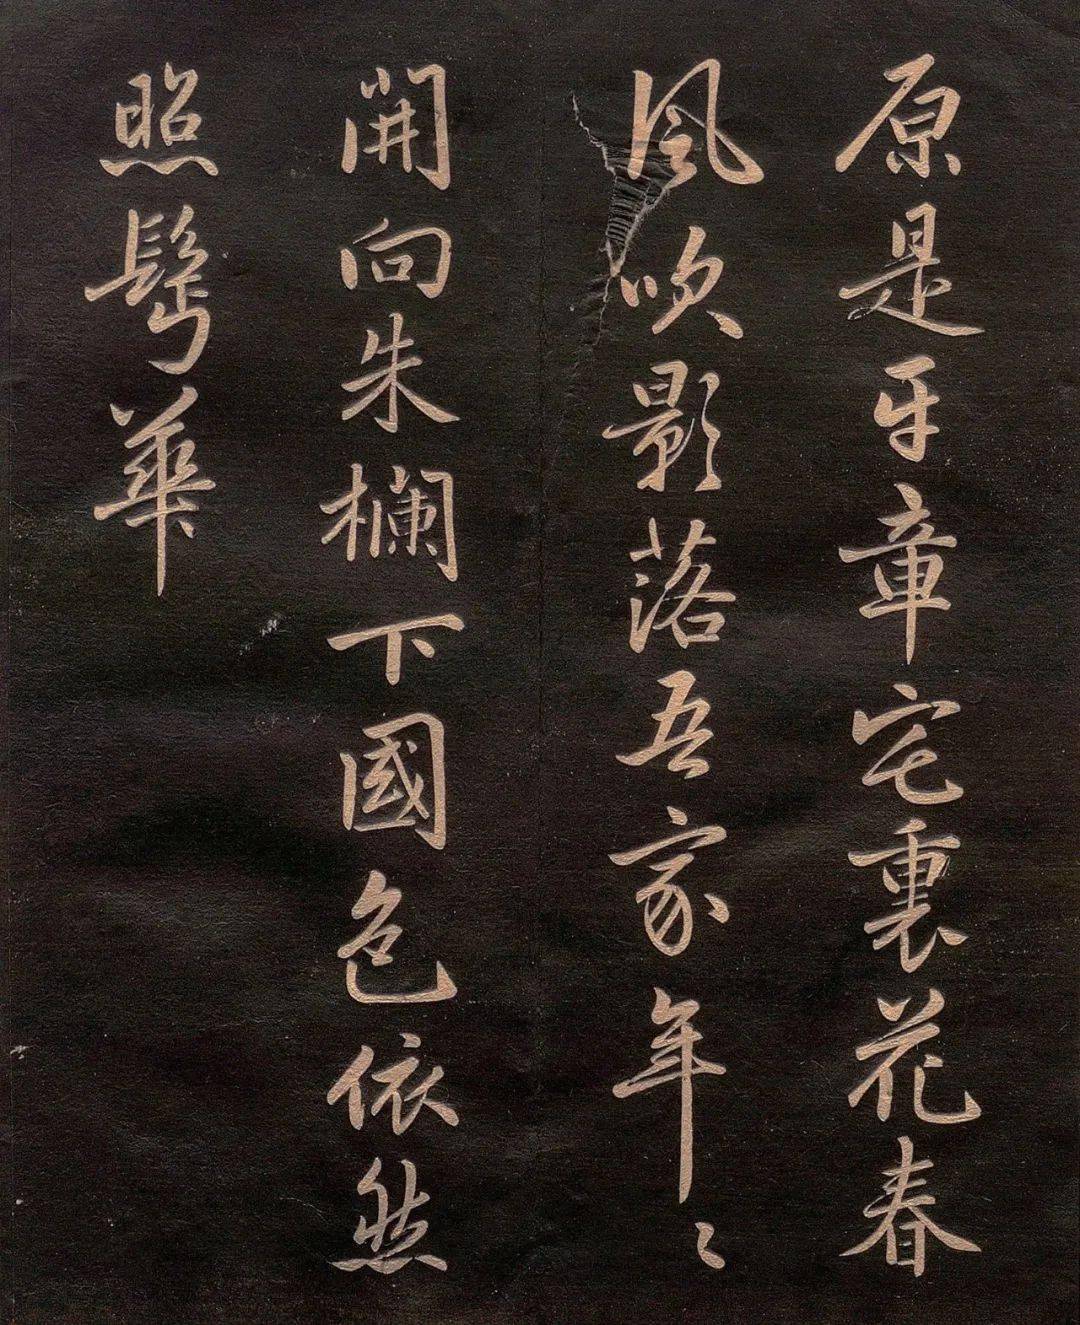 原是平章宅裏花春
風吹影落吾家年々
開向朱欄下國色依然
照鬢華